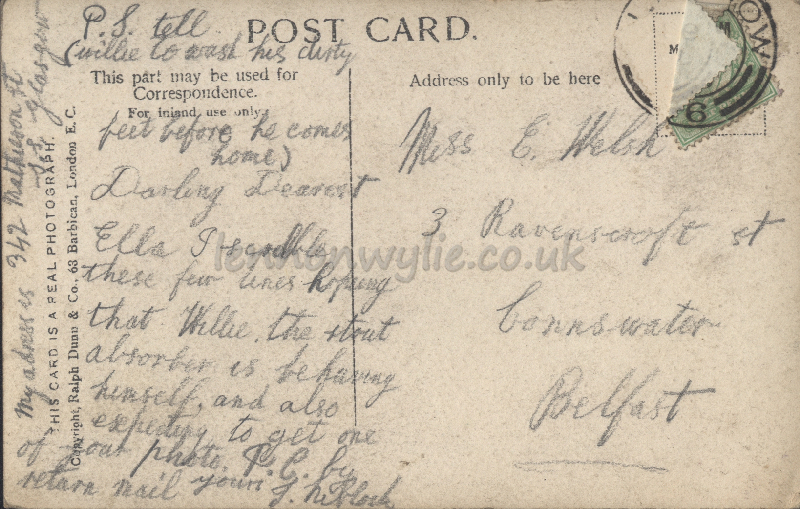 P.S. tell
(willie to wash his dirty
POST CARD.
This part may be used for
Correspondence.
For inland use only.
Address only to be here
feet before he comes
home)
Darling Dearest
Ella I scribble
these few lines hoping
that Willie, the stout
absorber is behaving
himself, and also
expecting to get one
of your photo. P.C. by
return mail yours.
My adress is 342 Mathieson st
S.S. glasgow
THIS CARD IS A REAL PHOTOGRAPH.
(Copyright, Ralph Dunn & Co., 63 Barbican, London E.C.
Miss E. Welsh
3 Ravenscroft st
Connswater
Belfast
lennonwylie.co.uk